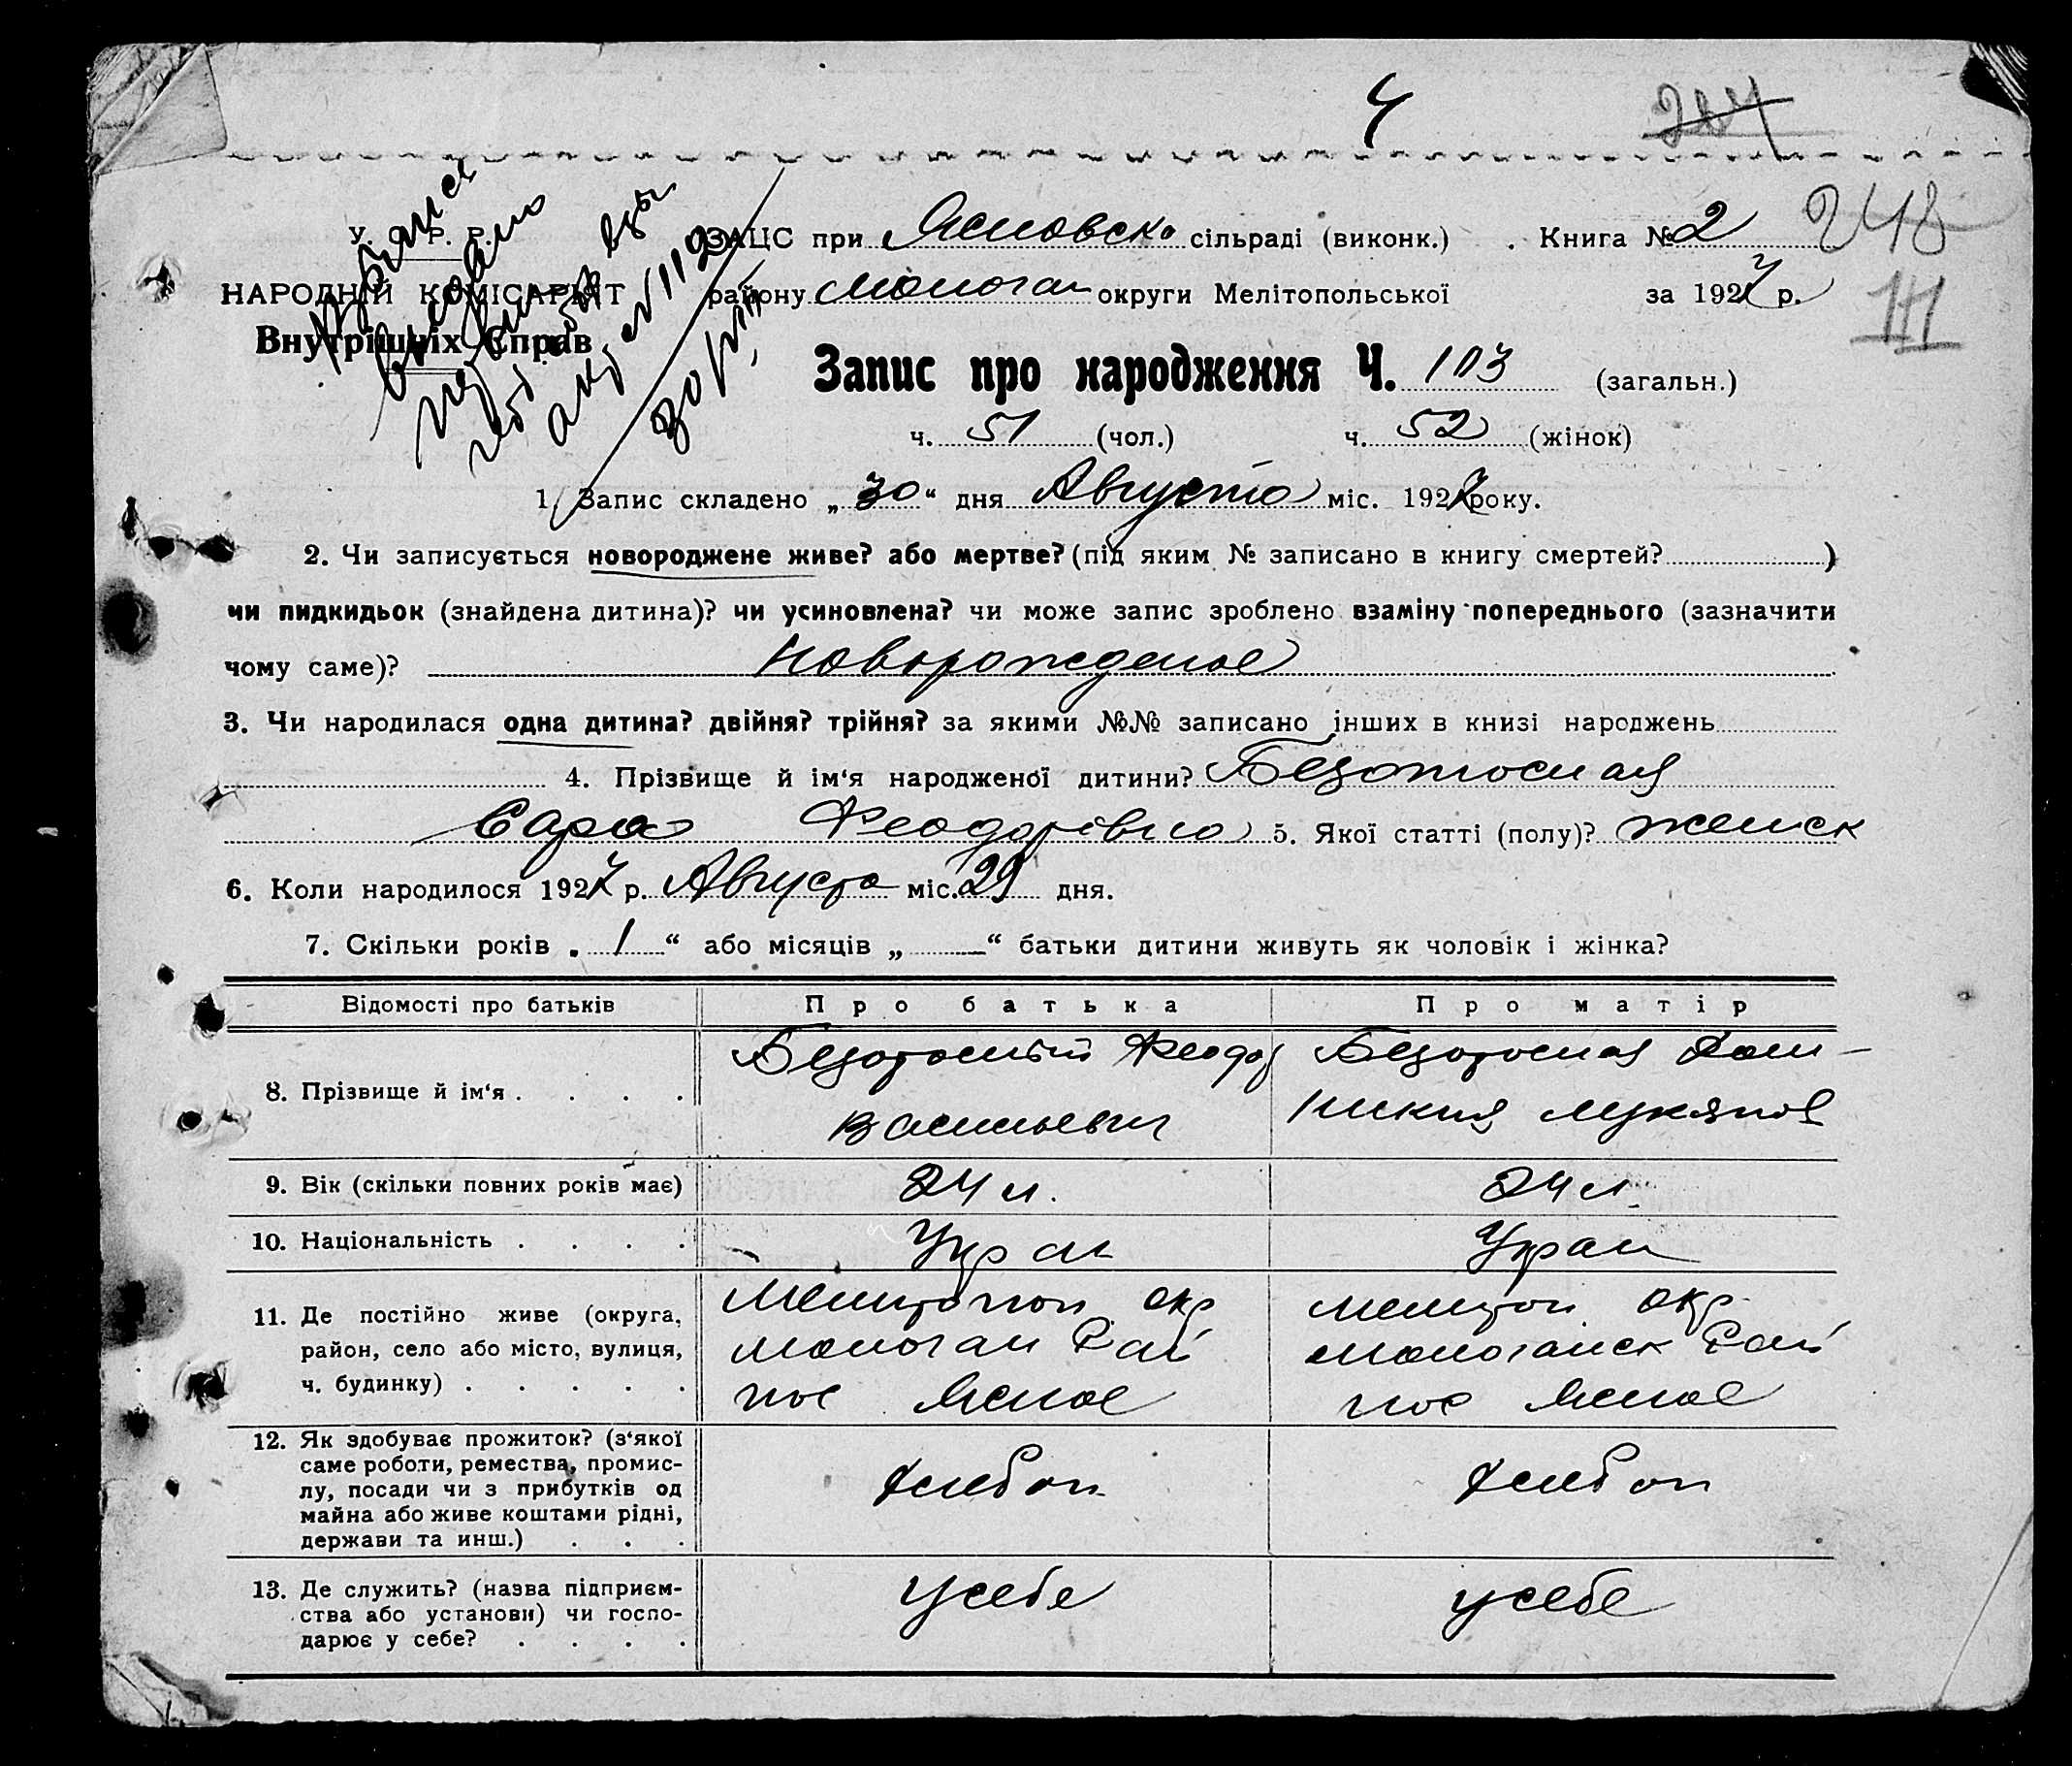 4 284
У. С. Р. Р.
ЗАЦС при Ясновско сільраді (виконк.) . Книга № 2 248
НАРОДНІЙ КОМІСАРІЯТ
району Молочан округи Мелітопольської за 1927 р. III
Внутрішніх Справ
Запис про народження Ч. 103 (загальн.)
ч. 51 (чол.) ч. 52 (жінок)
1. Запис складено „30“ дня Августа міс. 1927 року.
2. Чи записується новороджене живе? або мертве? (під яким № записано в книгу смертей? )
чи пидкидьок (знайдена дитина)? чи усиновлена? чи може запис зроблено взаміну попереднього (зазначити
чому саме)? Новорожденое
3. Чи народилася одна дитина? двійня? трійня? за якими №№ записано інших в книзі народжень
4. Прізвище й ім‘я народженої дитини? Безотосная
Сара Феодорівна 5. Якої статті (полу)? женск
6. Коли народилося 1927 р. Августа міс. 29 дня.
7. Скільки років „ 1 “ або місяців „ — “ батьки дитини живуть як чоловік і жінка?
Відомості про батьків Про батька Про матір
8. Прізвище й ім‘я . . . . Безотосный Феодор Безотосная Дом-
Васильевич никия Лукянов
9. Вік (скільки повних років має) 24 л. 24 л
10. Національність . . . . Укра Украи
11. Де постійно живе (округа, Мелитопол окр Мелитоп окр
район, село або місто, вулиця, Молочан Рай Молочанск Рай
ч. будинку) . . . . . пос Ясное пос Ясное
12. Як здобуває прожиток? (з‘якої
саме роботи, ремества, промис-
лу, посади чи з прибутків од хлебоп хлебоп
майна або живе коштами рідні,
держави та инш.) . . .
13. Де служить? (назва підприєм- у себе у себе
ства або установи) чи госпо-
дарює у себе? . . . .